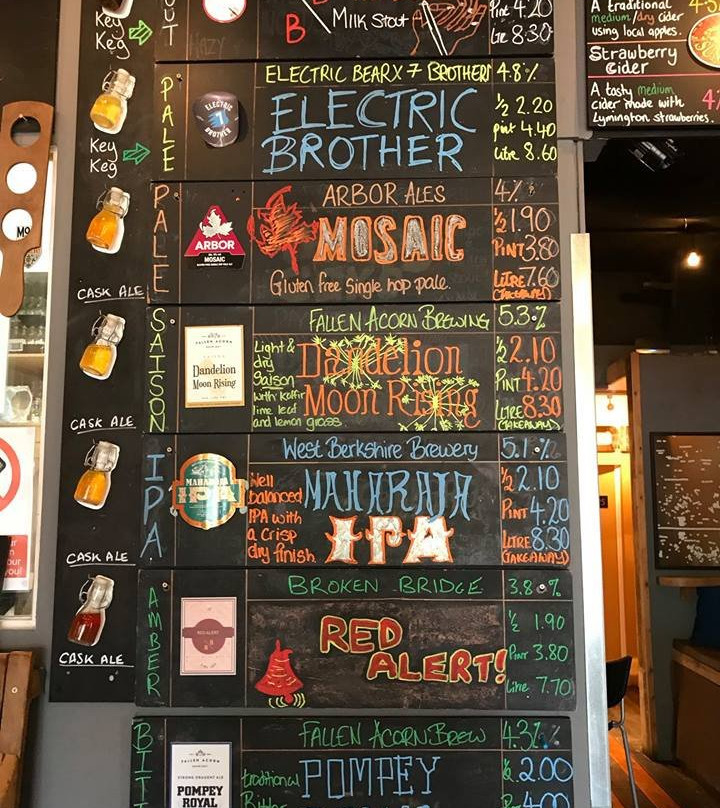 Key
Keg
OUT
B
Milk Stout
Hazy
Pint 4.20
Ltre 8.30
A traditional
medium/dry cider
using local apples.
4.5
Strawberry
Cider
A tasty medium
cider made with
Lymington strawberries.
4
Key
Keg
PALE
ELECTRIC
BROTHER
ELECTRIC BEAR X 7 BROTHERS
ELECTRIC
BROTHER
4.8%
1/2 2.20
pint 4.40
Litre 8.60
CASK ALE
PALE
ARBOR
MOSAIC
ARBOR ALES
MOSAIC
Gluten free Single hop pale.
4%
1/2 1.90
PINT 3.80
LITRE 7.60
(TAKEAWAY)
CASK ALE
SAISON
FALLEN ACORN
Dandelion
Moon Rising
FALLEN ACORN BREWING
Light &
dry
Saison
with kaffir
lime leaf
and lemon grass.
Dandelion
Moon Rising
5.3%
1/2 2.10
PINT 4.20
LITRE 8.30
(TAKEAWAY)
CASK ALE
IPA
MAHARAJA
IPA
West Berkshire Brewery
Well
balanced
IPA with
a crisp
dry finish.
MAHARAJA
IPA
5.1%
1/2 2.10
PINT 4.20
LITRE 8.30
(TAKEAWAY)
CASK ALE
AMBER
RED ALERT
BROKEN BRIDGE
RED
ALERT!
3.8%
1/2 1.90
PINT 3.80
Litre 7.70
BIT
FALLEN ACORN
STRONG DRAUGHT ALE
POMPEY
ROYAL
FALLEN ACORN BREW
traditional
Bitter
POMPEY
4.3%
1/2 2.00
4.00
Mo
our
you!